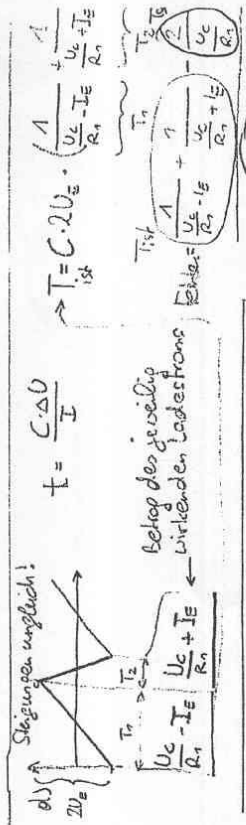 d) Steigungen ungleich!
2U_E
T_1 T_2
U_C/R_1 - I_E
U_C/R_1 + I_E
← Betrag des jeweilig
wirkenden Ladestroms
t = C·ΔU/I
→ T_ist = C·2U_E · (1/(U_C/R_1 - I_E) + 1/(U_C/R_1 + I_E))
T_1 T_2
T_ist
= 1/(U_C/R_1 - I_E) + 1/(U_C/R_1 + I_E)
2/(U_C/R_1)